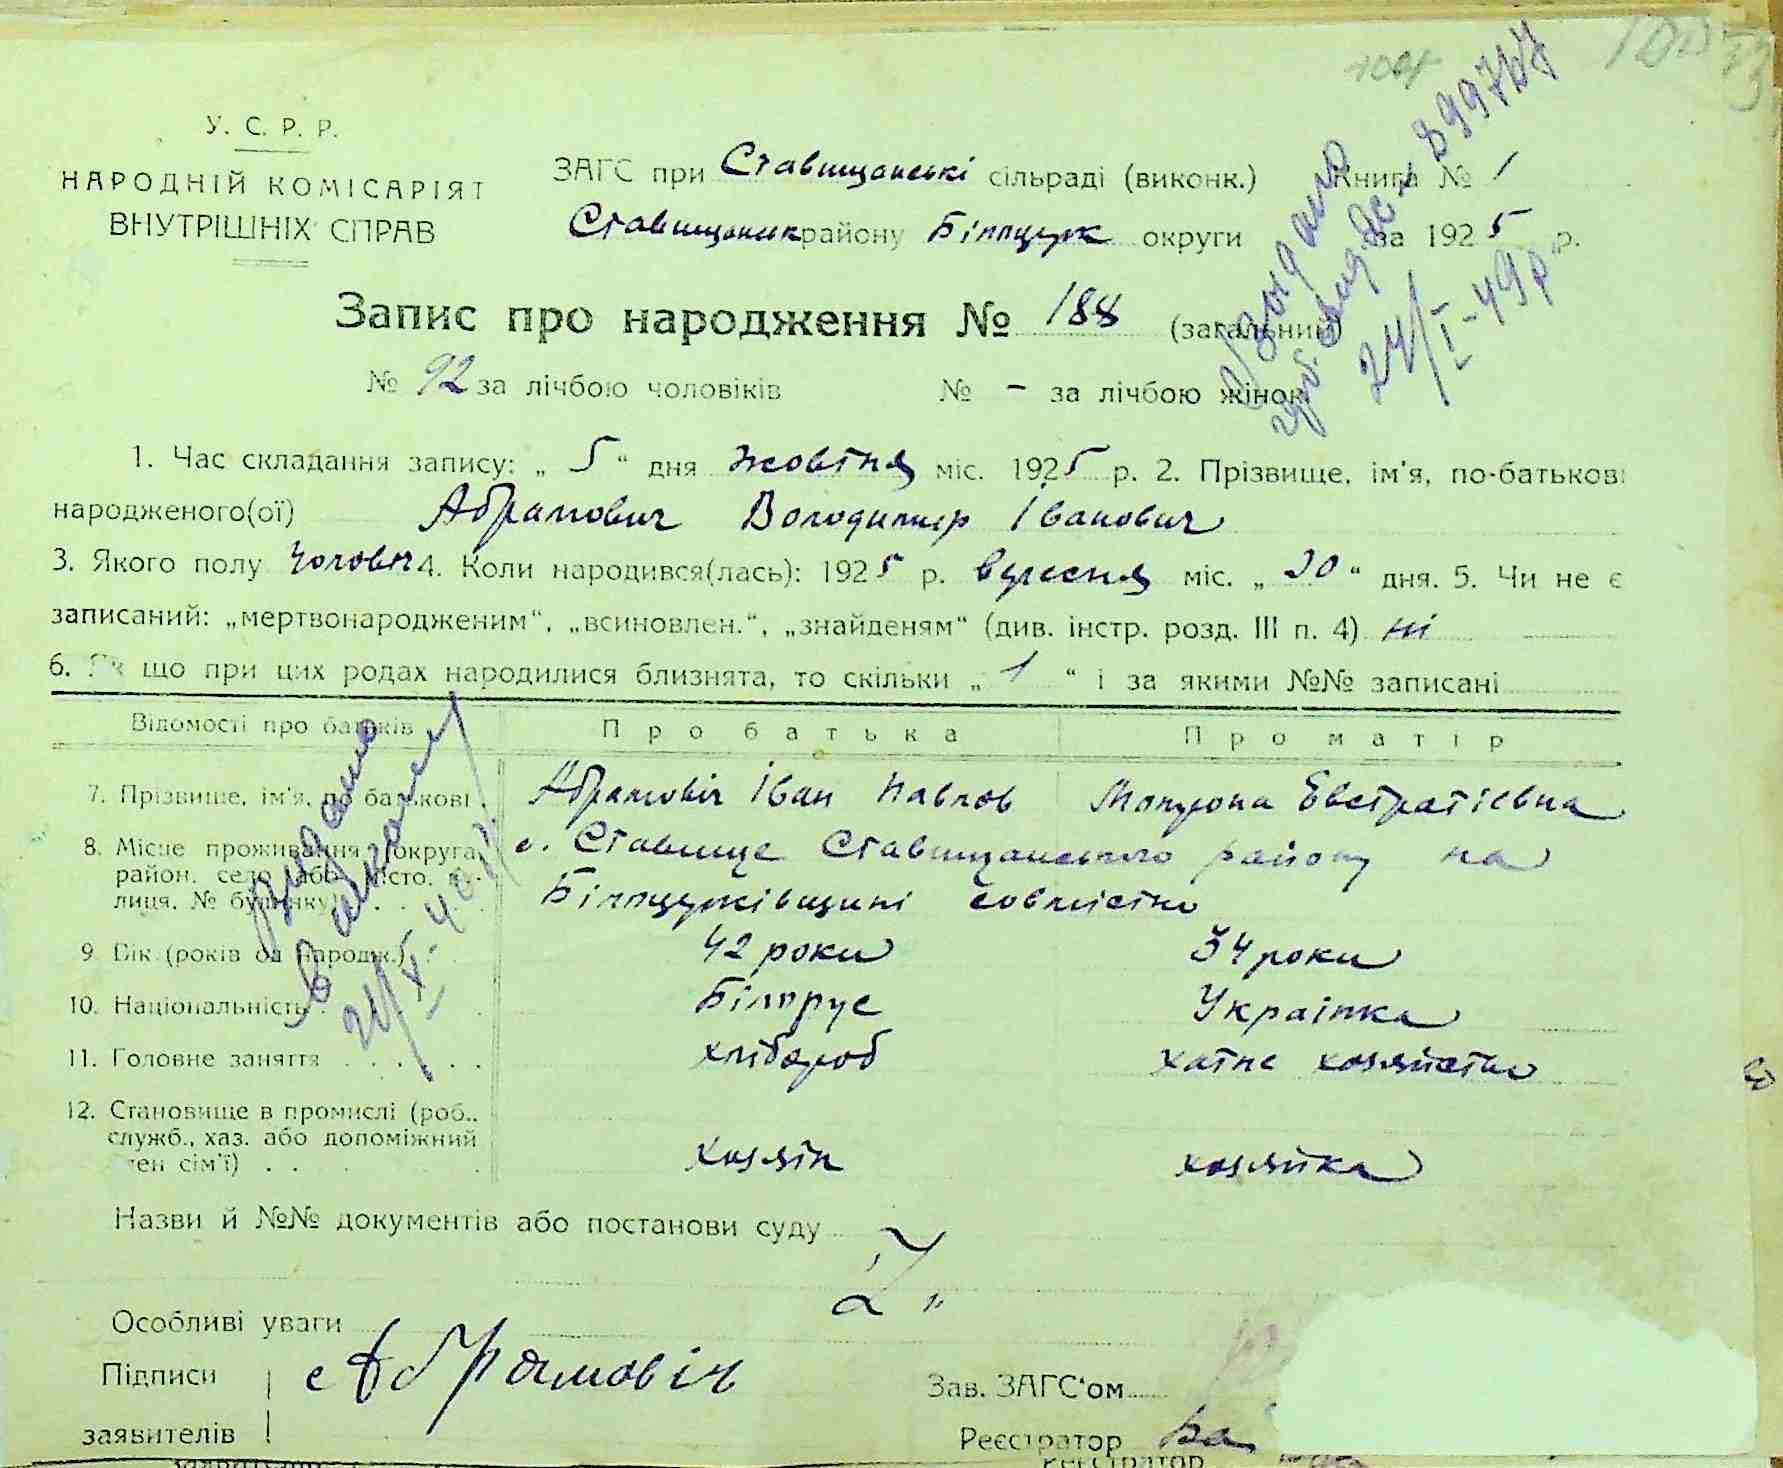 У. С. Р. Р.
НАРОДНІЙ КОМІСАРІЯТ
ВНУТРІШНІХ СПРАВ
ЗАГС при Ставищанські сільраді (виконк.) Книга № 1
Ставищанськ району Білоцерк округи за 1925 р.
Запис про народження № 188 (загальний)
№ 92 за лічбою чоловіків № – за лічбою жінок
1. Час складання запису: „ 5 “ дня жовтня міс. 1925 р. 2. Прізвище, ім'я, по-батькові
народженого(ої) Абрамович Володимир Іванович
3. Якого полу чоловіч 4. Коли народився(лась): 1925 р. вересня міс. „ 20 “ дня. 5. Чи не є
записаний: „мертвонародженим“, „всиновлен.“, „знайденям“ (див. інстр. розд. III п. 4) ні
6. Як що при цих родах народилися близнята, то скільки „ 1 “ і за якими №№ записані
Відомості про батьків Про батька Про матір
7. Прізвище, ім'я, по батькові . Абрамовіч Іван Павлов Мотрона Евстратієвна
8. Місце проживання (округа, с. Ставище Ставищанського району на
район, село або місто, ву-
лиця, № будинку) . . . Білоцерківщині совмістно
9. Вік (років од народж.) . 42 роки 34 роки
10. Національність . Білорус Українка
11. Головне заняття . . . . . . хлібороб хатнє хозяйство
12. Становище в промислі (роб.,
служб., хаз. або допоміжний
член сім'ї) . . хозяїн хозяйка
Назви й №№ документів або постанови суду
Особливі уваги
Підписи Абрамовіч Зав. ЗАГС'ом
заявителів Реєстратор
Видано
24/I-49р
899747
видано